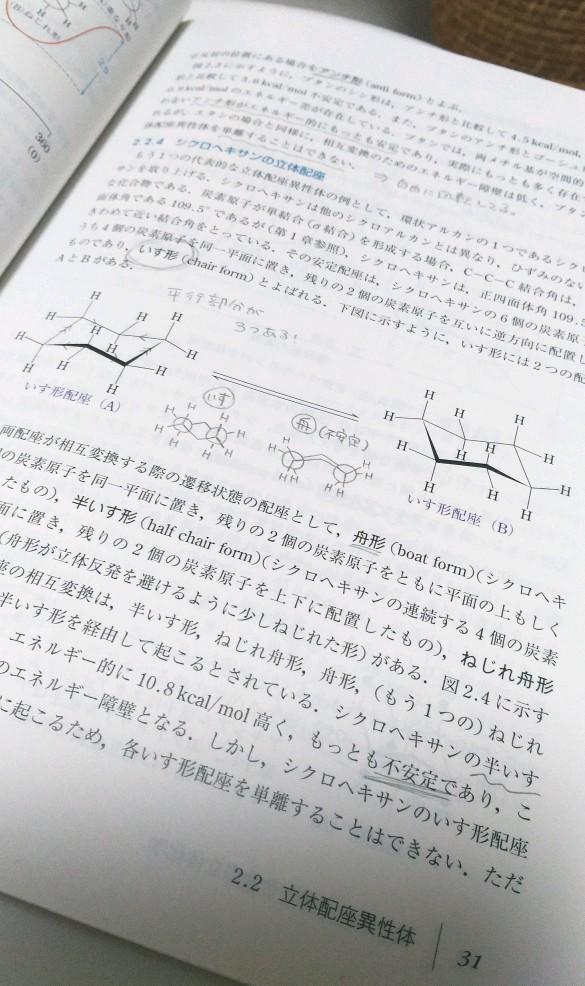 360
(0)
な反対の位置にある場合をアンチ形 (anti form) とよぶ.
図2.3に示すように, ブタンのシン形は, アンチ形と比較して4.5 kcal/mol,
形と比較して3.6 kcal/mol 不安定である. また, ブタンのアンチ形とゴーシュ
0.9 kcal/mol のエネルギー差が存在している. ブタンでは, 両メチル基が空間的
わないアンチ形がエネルギー的にもっとも安定であり, 実際にもっとも多く存在
れるが, エタンの場合と同様に, 相互変換のためのエネルギー障壁は低く, ブタン
体配座異性体を単離することはできない.
2.2.4 シクロヘキサンの立体配座
もう1つの代表的な立体配座異性体の例として, 環状アルカンの1つであるシクロ
サンを取り上げる. シクロヘキサンは他のシクロアルカンとは異なり, ひずみのない
な化合物である. 炭素原子が単結合 (σ結合) を形成する場合, C−C−C 結合角は,
面体角である 109.5°であるが (第1章参照), シクロヘキサンは, 正四面体角 109.5
きわめて近い結合角をとっている. その安定配座は, シクロヘキサンの6個の炭素原子
うち4個の炭素原子を同一平面に置き, 残りの2個の炭素原子を互いに逆方向に配置し
ものであり, いす形 (chair form) とよばれる. 下図に示すように, いす形には2つの配
AとBがある.
平行部分が
3つある!
H H H H H H H H H H H H
いす形配座 (A)
いす
舟 (不安定)
H H H H H H H H H H H H
いす形配座 (B)
両配座が相互変換する際の遷移状態の配座として, 舟形 (boat form) (シクロヘキ
の炭素原子を同一平面に置き, 残りの2個の炭素原子をともに平面の上もしく
たもの), 半いす形 (half chair form) (シクロヘキサンの連続する4個の炭素
面に置き, 残りの2個の炭素原子を上下に配置したもの), ねじれ舟形
(舟形が立体反発を避けるように少しねじれた形) がある. 図2.4に示す
座の相互変換は, 半いす形, ねじれ舟形, 舟形, (もう1つの) ねじれ
半いす形を経由して起こるとされている. シクロヘキサンの半いす
エネルギー的に 10.8 kcal/mol 高く, もっとも不安定であり, こ
のエネルギー障壁となる. しかし, シクロヘキサンのいす形配座
に起こるため, 各いす形配座を単離することはできない. ただ
2.2 立体配座異性体 31